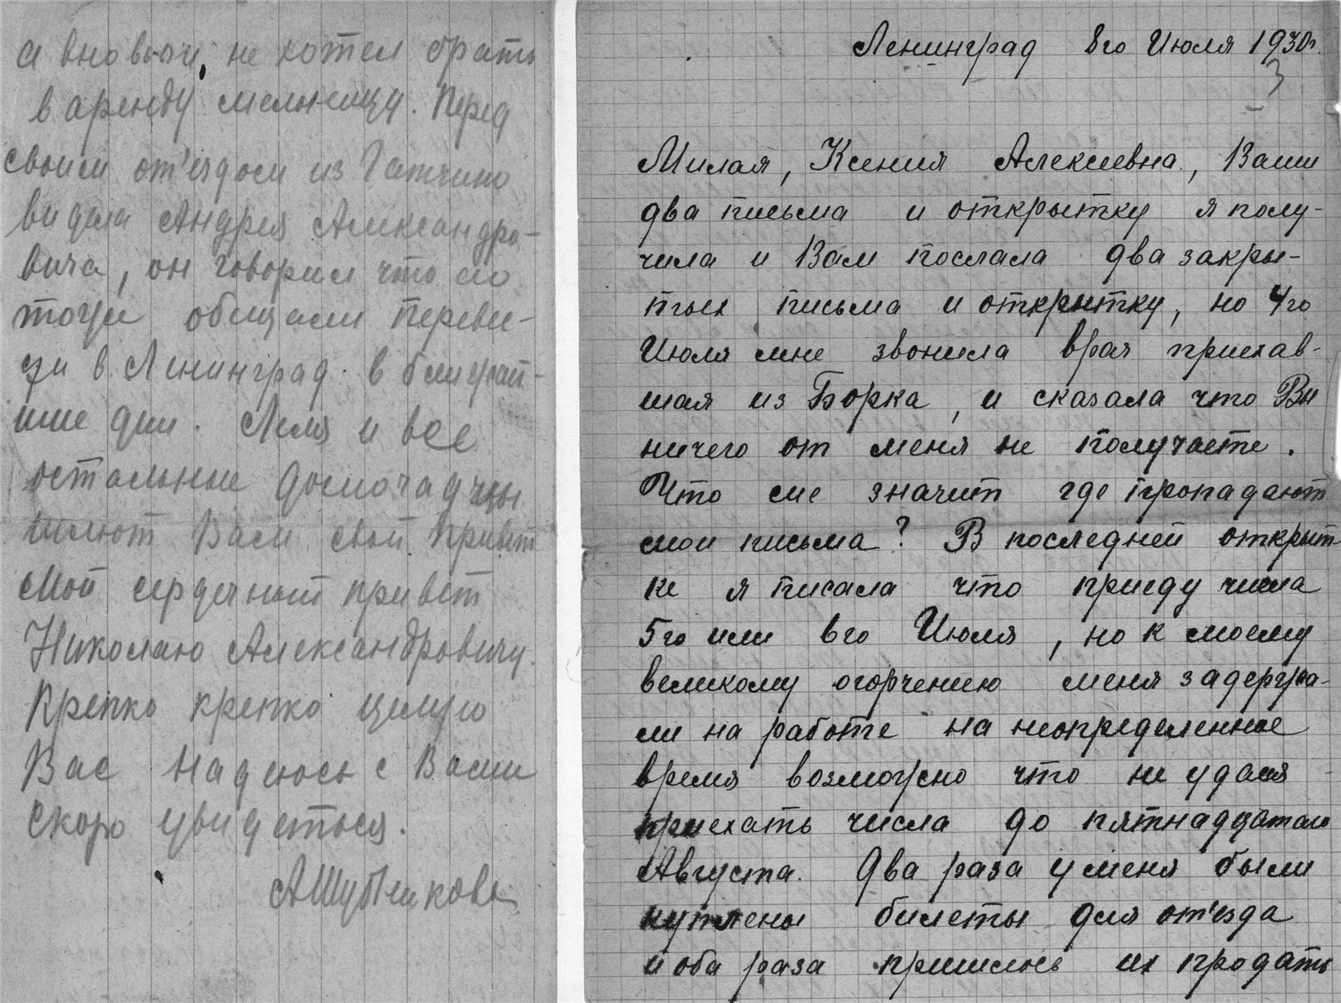 а вновь он не хотел брать
в аренду мельницу. Перед
своим от'ездом из Гатчино
видала Андрея Александро-
вича, он говорил что его
тоже обещали переве-
зти в Ленинград в ближай-
шие дни. Леля и все
остальные домочадцы
шлют Вам свой привет
Мой сердечный привет
Николаю Александровичу.
Крепко крепко целую
Вас надеюсь с Вами
скоро увидеться.
АШубенкова
Ленинград 8го Июля 1930г.
3
Милая, Ксения Алексеевна, Ваши
два письма и открытку я полу-
чила и Вам послала два закры-
тых письма и открытку, но 4го
Июля мне звонила врач приехав-
шая из Борка, и сказала что Вы
ничего от меня не получаете.
Что сие значит где пропадают
мои письма? В последней открыт
ке я писала что приеду числа
5го или 6го Июля, но к моему
великому огорчению меня задержа-
ли на работе на неопределенное
время возможно что не удася
приехать числа до пятнадцатого
Августа. Два раза у меня были
куплены билеты для от'езда
и оба раза пришлось их продать